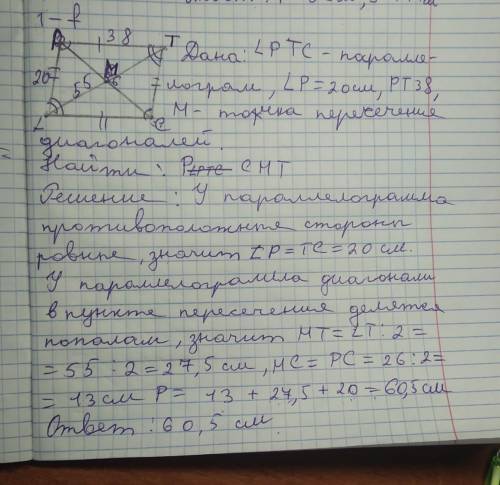 1-
38
T
Дана: LPTC - паралле-
20
лограм, LP=20см, PT38,
M
55
M- точка пересечения
L
C
диагоналей.
Найти: P CMT
Решение: У параллелограмма
противоположные стороны
ровные, значит LP=TC=20 см.
У параллелограмма диагонали
в пункте пересечения делятся
пополам, значит MT=LT:2=
=55:2=27,5 см, MC=PC=26:2=
=13 см P= 13+27,5+20=60,5 см
Ответ: 60,5 см